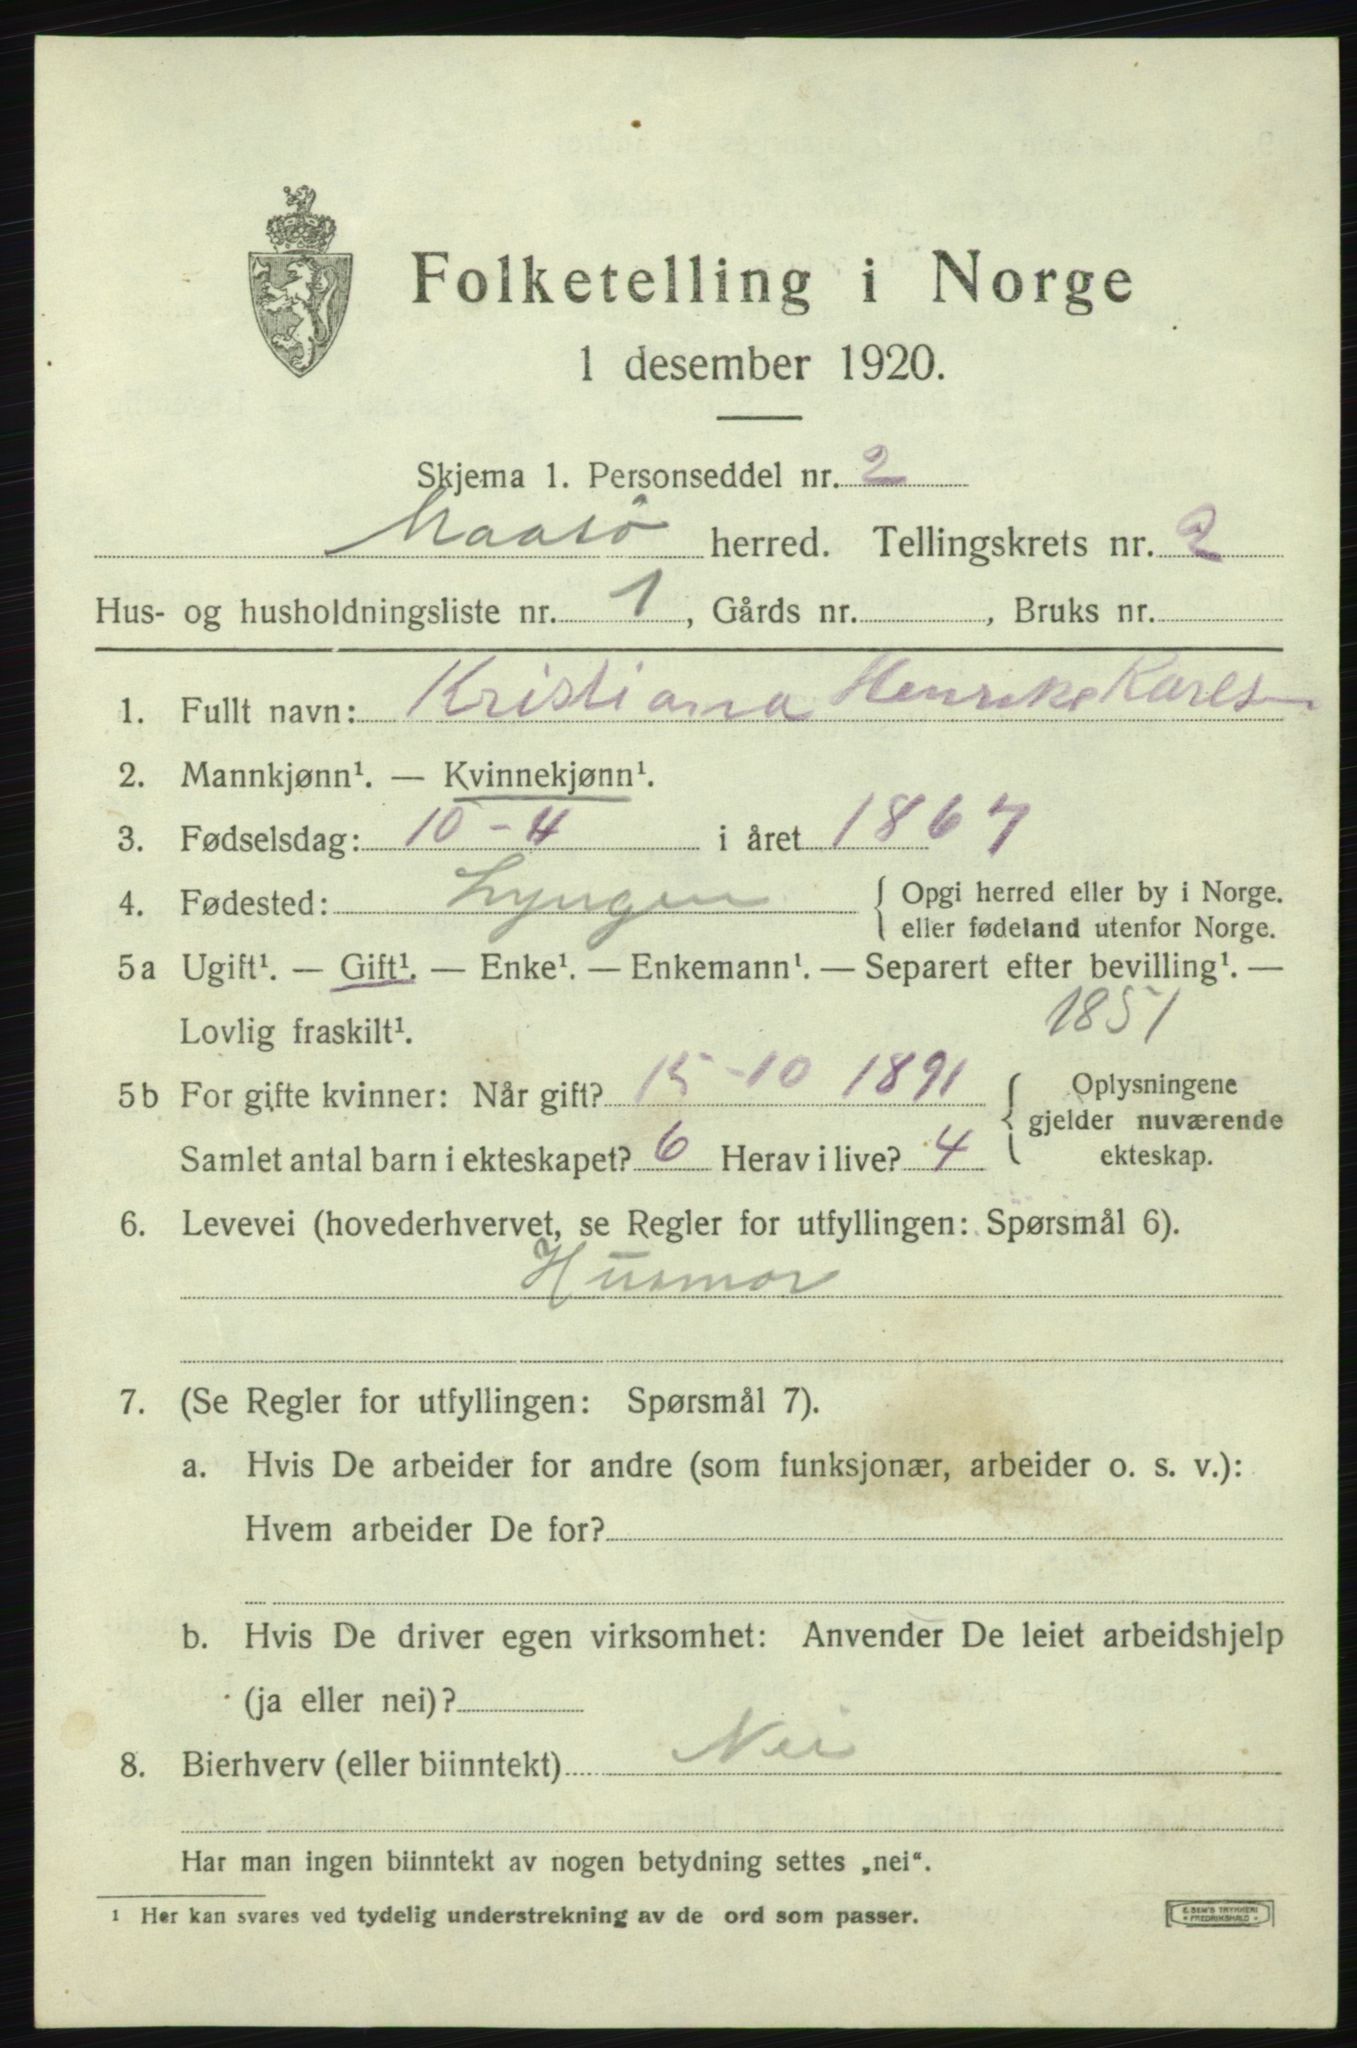 Folketelling i Norge
1 desember 1920.
Skjema 1. Personseddel nr. 2
Maasö herred. Tellingskrets nr. 2
Hus- og husholdningsliste nr. 1, Gårds nr. , Bruks nr.
1. Fullt navn: Kristiana Henrike Karlsen
2. Mannkjønn¹. — Kvinnekjønn¹.
3. Fødselsdag: 10-4 i året 1867
4. Fødested: Lyngen { Opgi herred eller by i Norge.
eller fødeland utenfor Norge.
5a Ugift¹. — Gift¹. — Enke¹. — Enkemann¹. — Separert efter bevilling¹. —
Lovlig fraskilt¹. 1851
5b For gifte kvinner: Når gift? 15-10 1891 { Oplysningene
gjelder nuværende
Samlet antal barn i ekteskapet? 6 Herav i live? 4 ekteskap.
6. Levevei (hovederhvervet, se Regler for utfyllingen: Spørsmål 6).
Husmor
7. (Se Regler for utfyllingen: Spørsmål 7).
a. Hvis De arbeider for andre (som funksjonær, arbeider o. s. v.):
Hvem arbeider De for?
b. Hvis De driver egen virksomhet: Anvender De leiet arbeidshjelp
(ja eller nei)?
8. Bierhverv (eller biinntekt) Nei
Har man ingen biinntekt av nogen betydning settes „nei“.
¹ Her kan svares ved tydelig understrekning av de ord som passer.
E. SEM'S TRYKKERI
FREDRIKSHALD